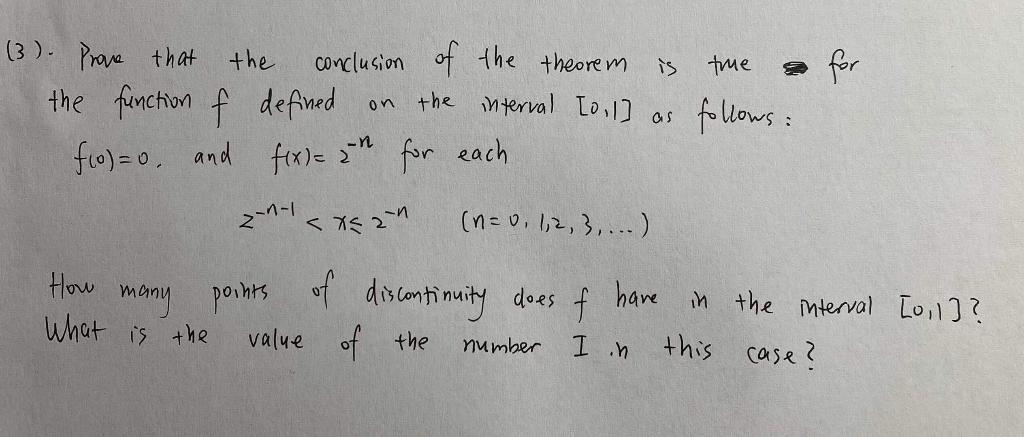 (3). Prove that the conclusion of the theorem is true for
the function f defined on the interval [0,1] as follows:
f(0)=0, and f(x)= 2^{-n} for each
2^{-n-1} < x ≤ 2^{-n} (n=0,1,2,3,...)
How many points of discontinuity does f have in the interval [0,1]?
What is the value of the number I in this case?